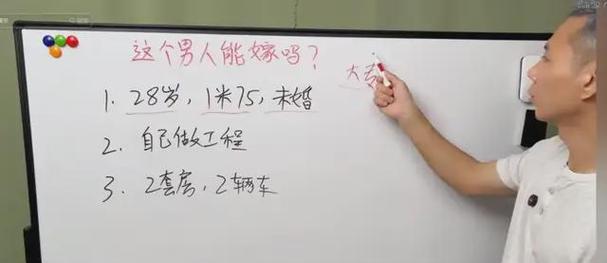 这个男人能嫁吗？
大专
1. 28岁, 1米75, 未婚
2. 自己做工程
3. 2套房, 2辆车